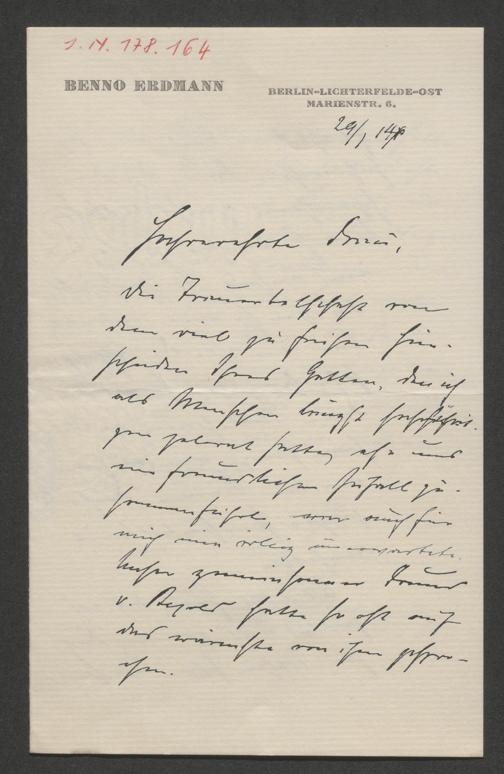 I. N. 178.164
BENNO ERDMANN
BERLIN-LICHTERFELDE-OST
MARIENSTR. 6.
29/1 14
Hochverehrte Frau,
die Trauerbotschaft von
dem viel zu frühen Hin-
scheiden Ihres Gatten, den ich
als Menschen längst hochschät-
zen gelernt hatte, ehe uns
ein freundlicher Zufall zu-
sammenführte, war auch für
mich eine völlig unerwartete.
Unser gemeinsamer Freund
v. Bezold hatte so oft auf
das wärmste von ihm gespro-
chen.